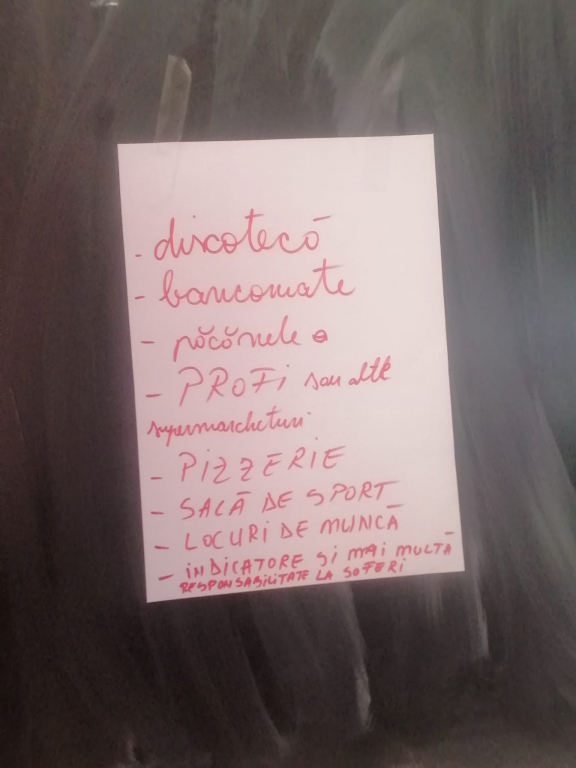 - discotecă
- bancomate
- păcănele
- PROFi sau alte
supermarcheturi
- PIZZERIE
- SALĂ DE SPORT
- LOCURI DE MUNCĂ
- iNDiCATORE Și MAi MULTĂ
RESPONSABILITATE LA ȘOFERI